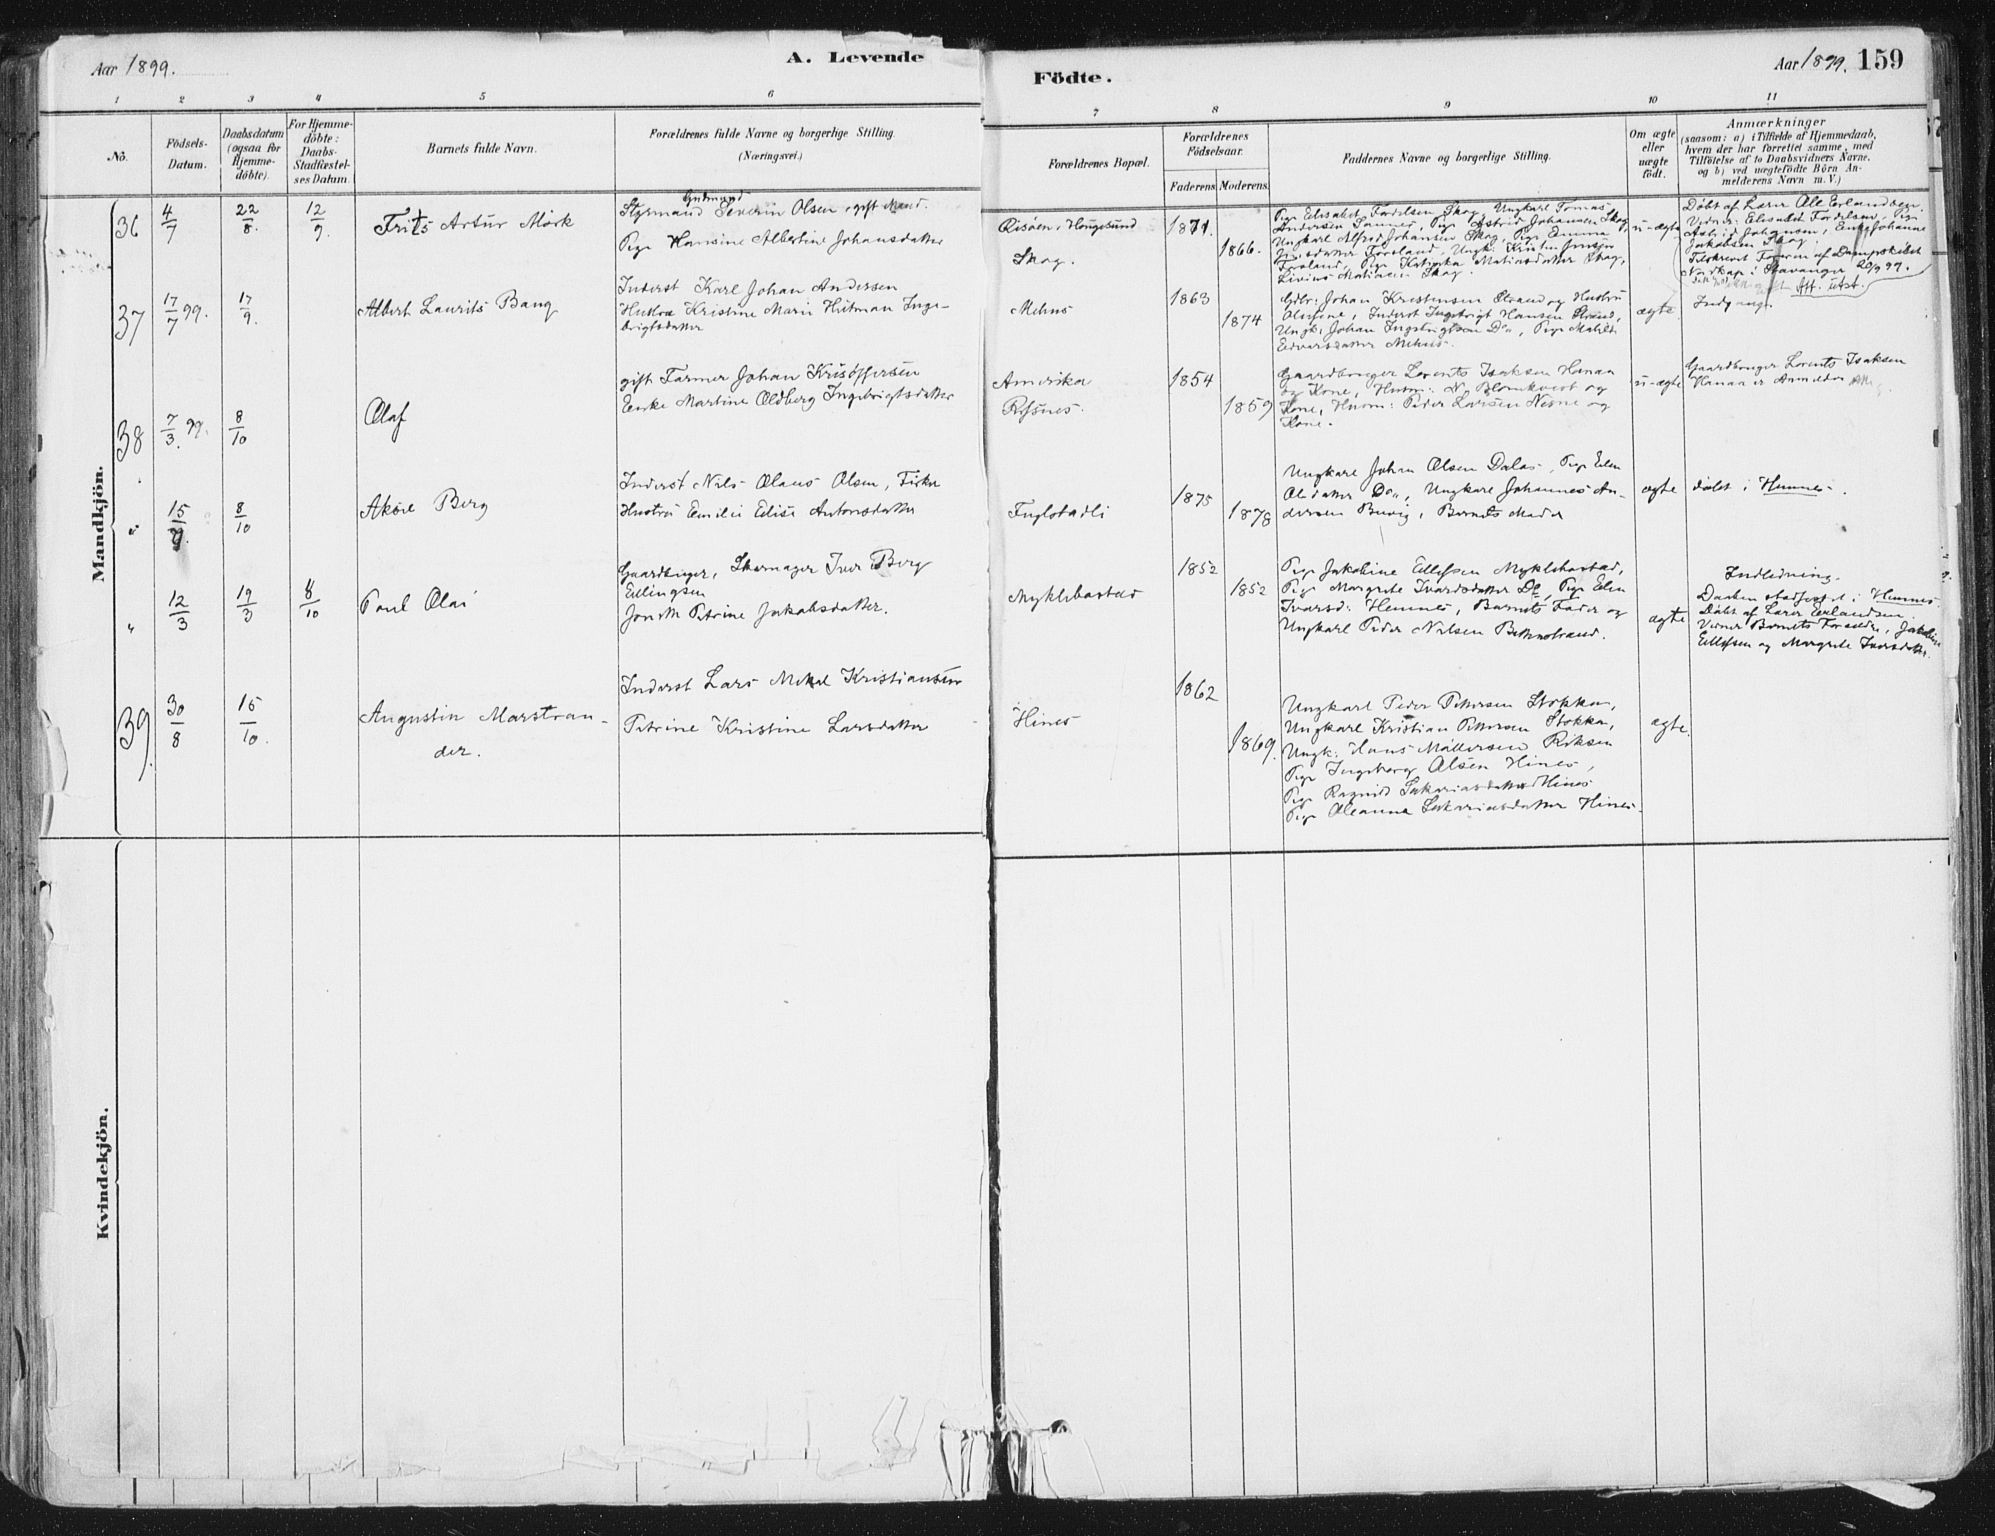 Aar 1899.
A. Levende
Födte.
Aar 1899. 159
1 2 3 4 5 6 7 8 9 10 11
No.
Födsels-Datum.
Daabsdatum (ogsaa for Hjemme-döbte).
For Hjemme-döbte: Daabs-Stadfæstel-ses Datum.
Barnets fulde Navn.
Forældrenes fulde Navne og borgerlige Stilling.
(Næringsvei.)
Forældrenes Bopæl.
Forældrenes Födselsaar.
Faderens. Moderens.
Faddernes Navne og borgerlige Stilling.
Om ægte eller uægte födt.
Anmærkninger
(saasom: a) i Tilfælde af Hjemmedaab, hvem der har forrettet samme, med Tilföielse af to Daabsvidners Navne. og b) ved uægtefödte Börn An-melderens Navn m. V.)
Mandkjön.
36 4/7 22/8 12/9 Frits Artur Mörk
Styrmand Severin Olsen, gift Mand.
Pige Hansine Albertine Johansdatter
Risöen, Haugesund
Skog.
1871. 1866.
Pige Elisabet Skog, Ungkarl Tomas
Andersen Sannes, Pige Astrid Johansen Skog,
Ungkarl Alfred Johansen Skog, Pige Emma
Forsland, Ungk: Kristen Jensen
Forsland, Pige Matiasdatter Skog,
Matiasen Skog.
u-ægte
Döbt af Lærer Ole Erlandsen.
Vidner: Elisabet, Pige
Astrid Johansen, Enke Johanna
Jakobsen Skog.
Tilskrevet Föreren af Dampskibet
Nordkap i Stavanger 20/9 99.
37 17/7 99. 17/9. Albert Laurits Bang
Inderst Karl Johan Andersen
Hustru Kristine Marie Hutman Inge-
brigtsdatter
Mehus
1863 1874
Gdbr: Johan Kristensen Strand og Hustru
Olufine, Inderst Ingebrigt Hansen Strand,
Ungk: Johan Ingebrigtsen Do, Pige
Edvardsdatter Mehus.
ægte.
Indgang.
38 7/3 99. 8/10 Olaf
gift Farmer Johan Kristoffersen
Enke Martine Oldberg Ingebrigtsdatter
Amerika
Refsnes.
1854 1859
Gaardbruger Lorents Isaksen Hanaa
og Kone, Husm: N. Blomkvist og
Kone, Husm: Peder Larsen Nesne og
Kone.
u-ægte
Gaardbruger Lorents Isaksen
Hanaa er Anmelder
" 15/9 8/10 Aksel Berg
Inderst Nils Olaus Olsen, Fisker
Hustru Emilie Elise Antonsdatter
Fuglstadli
1875 1878
Ungkarl Johan Olsen Dalas, Pige Elen
Olsdatter Do, Ungkarl Johannes An-
dersen Buvig, Barnets Moder
ægte
döbt i Hemnes.
" 12/3 19/3 8/10 Paul Olai
Gaardbruger, Skomager Iver Berg
Ellingsen
Petrine Jakobsdatter.
Myklebostad
1852 1852
Pige Jakobine Ellefsen Myklebostad,
Pige Margrete Ivarsdatter Do, Pige Elen
Ivarsd: Hemnes, Barnets Fader og
Ungkarl Peder Nilsen
ægte
Indledning.
Daaben stadfæstet i Hemnes.
Döbt af Lærer Erlandsen.
Vidner Barnets Forældre, Jakobine
Ellefsen og Margrete Ivarsdatter.
39. 30/8 15/10. Augustin Marstran-
der.
Inderst Lars Mikal Kristiansen
Petrine Kristine Larsdatter
Hines
1862 1869.
Ungkarl Peder Pettersen Stokka,
Ungkarl Kristian Pettersen Stokka,
Ungk: Hans Möllersen
Pige Ingeborg Olsen Hines,
Pige Ragnild Sakariasdatter Hines
Pige Oleanna Sakariasdatter Hines.
ægte.
Kvindekjön.